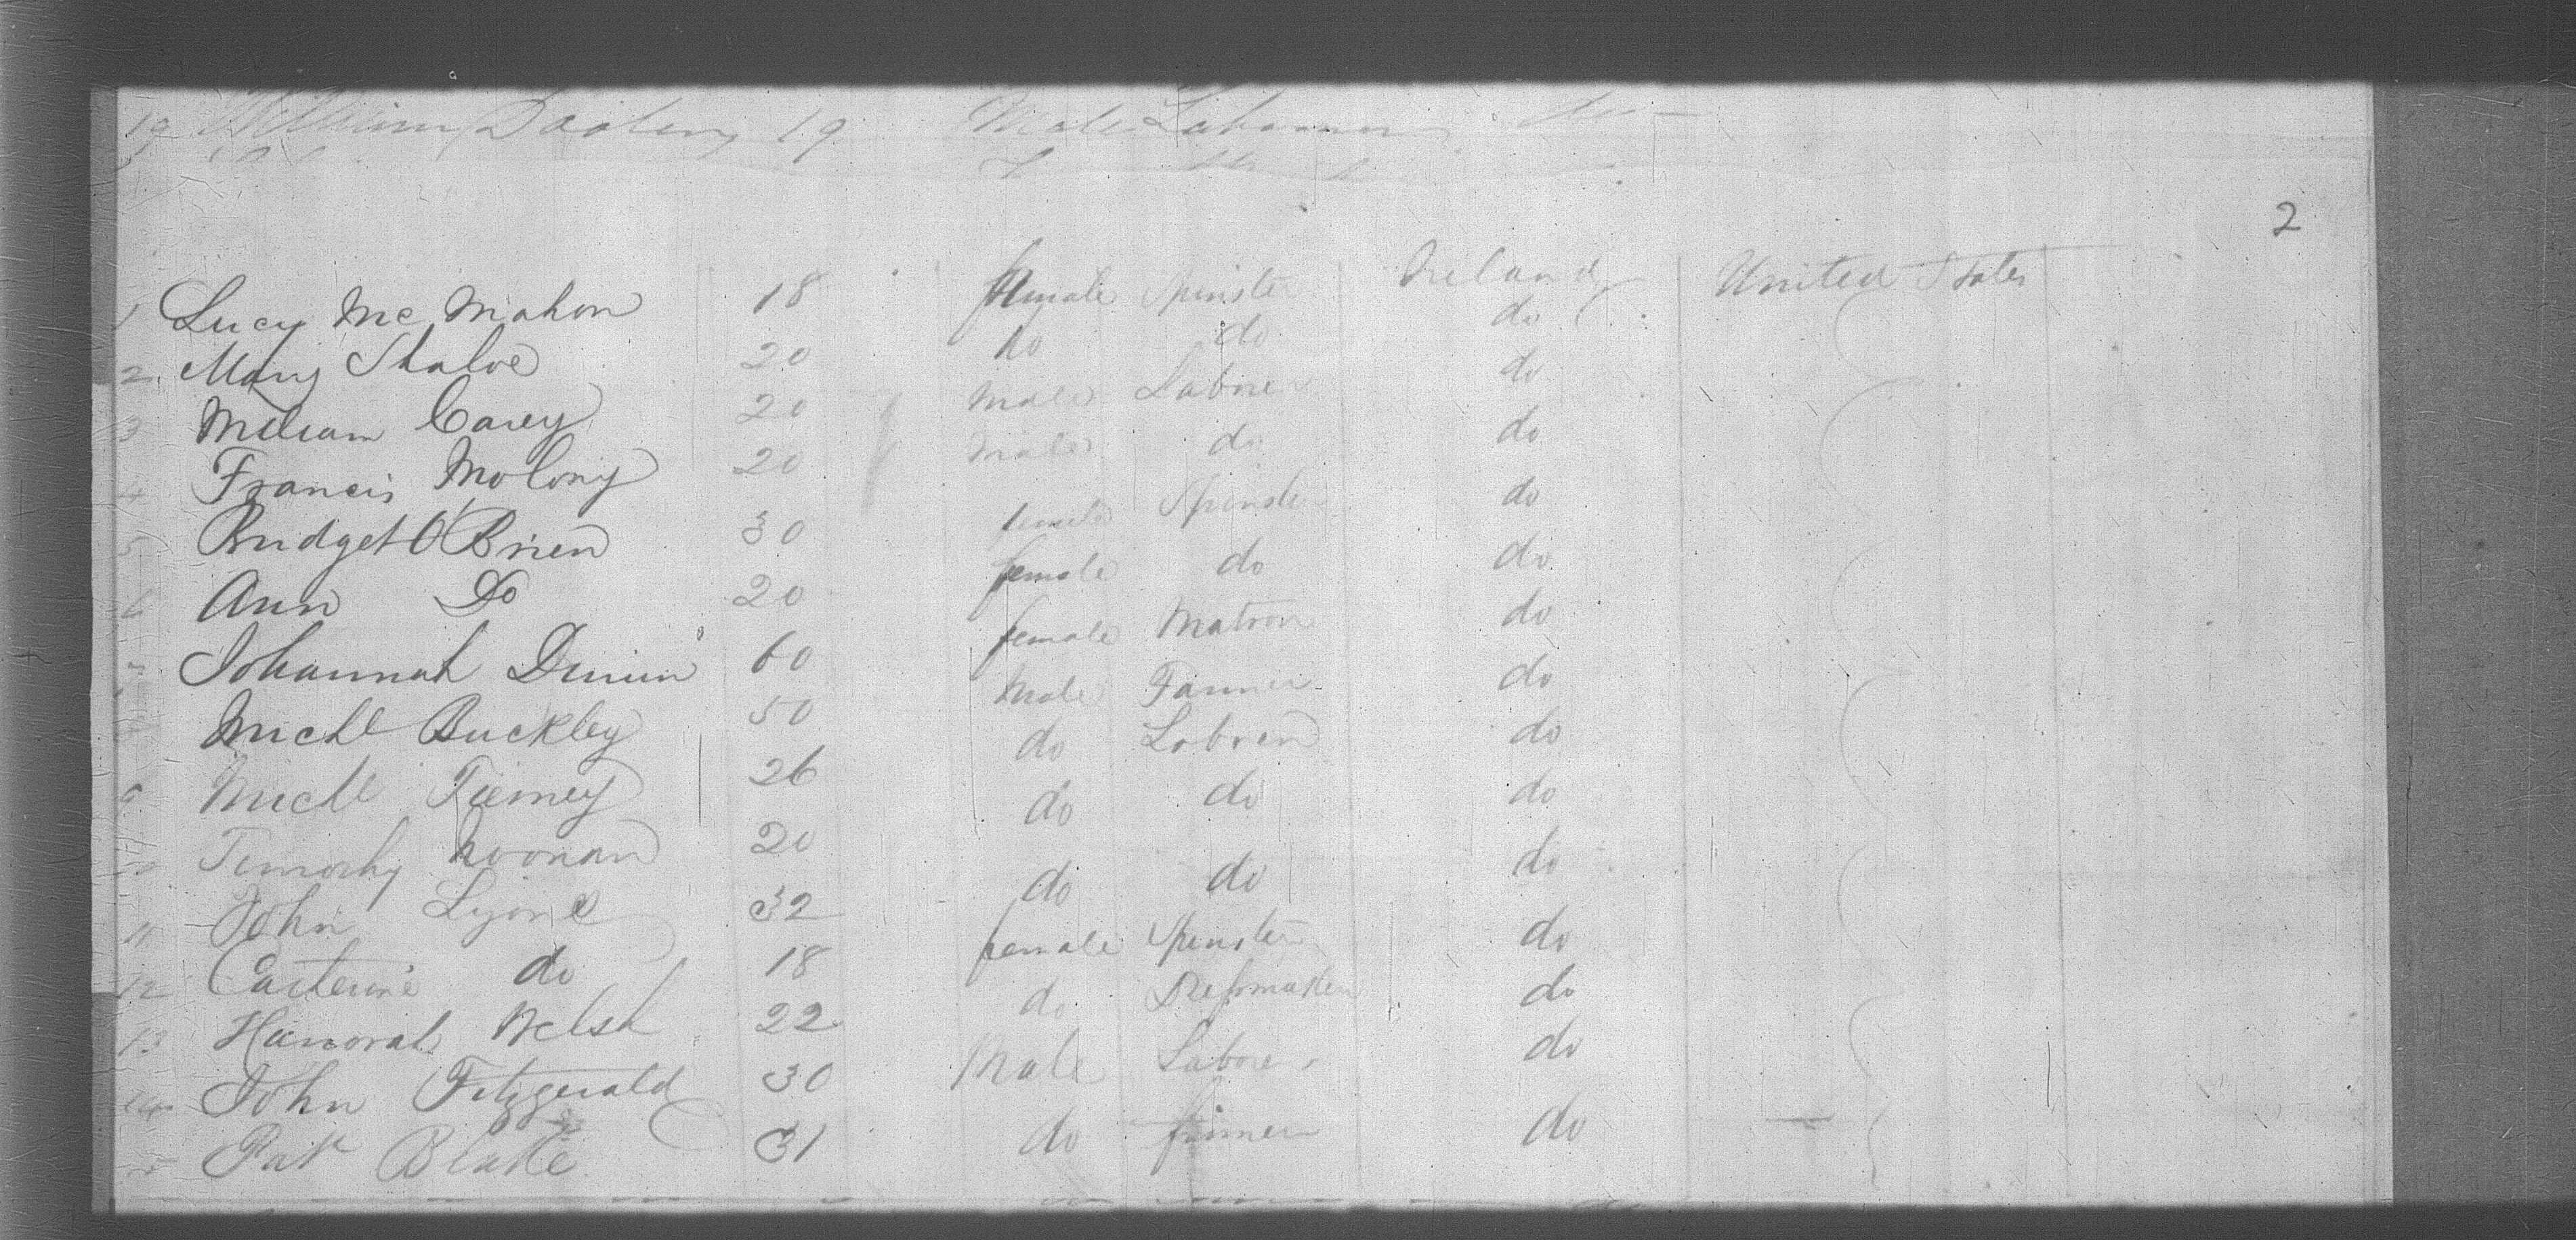 19 William 19 Male Labourer
2
1 Lucy Mc Mahon 18 female Spinster Ireland United States
2 Mary 20 do do do
3 William Carey 20 male Labrer do
4 Francis Molony 20 male do do
5 Bridget O'Brien 30 female Spinster do
6 Ann Do 20 female do do
7 Johannah 60 female Matron do
Michl Buckley 50 Male Farmer do
9 Michl Tierney 26 do Labrer do
10 Timothy Noonan 20 do do do
11 John Lyons 32 do do do
12 Catterine do 18 female Spinster do
13 Hannorah Welsh 22 do Dressmaker do
14 John Fitzgerald 30 Male Laborer do
15 Pat Blake 31 do farmer do